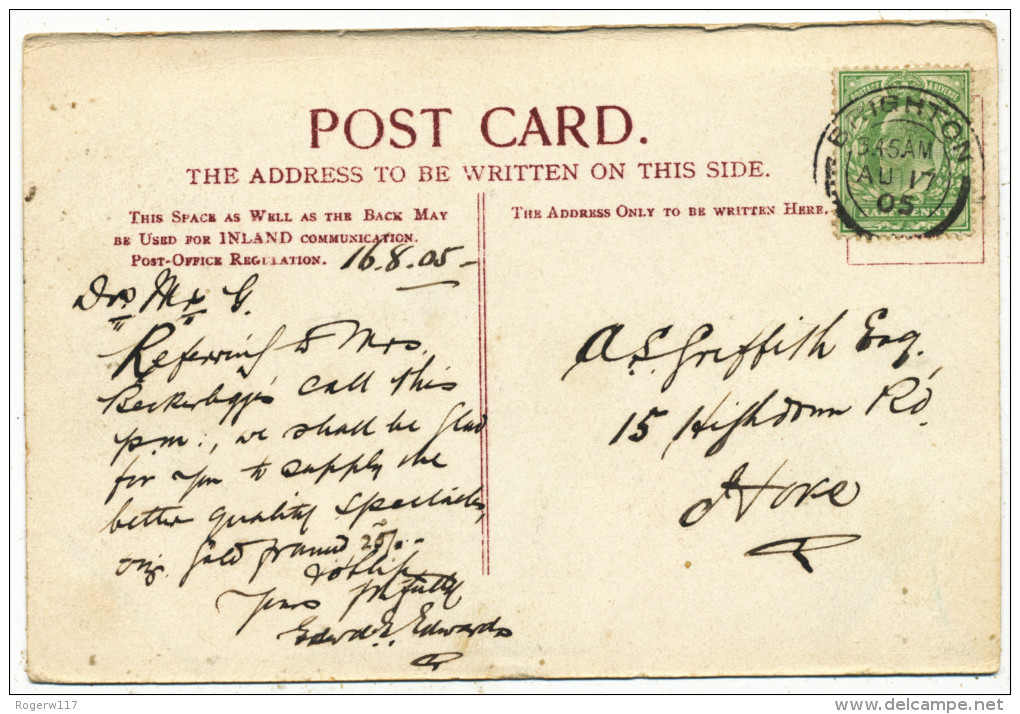 POST CARD.
THE ADDRESS TO BE WRITTEN ON THIS SIDE.
THIS SPACE AS WELL AS THE BACK MAY
BE USED FOR INLAND COMMUNICATION.
POST-OFFICE REGULATION.
16.8.05
Dr Mr G.
Referring to Mrs
call this
p.m:, we shall be glad
for you to supply the
better quality spectacles,
viz. gold framed 25/-
Yours faithfully
Edwards
THE ADDRESS ONLY TO BE WRITTEN HERE.
BRIGHTON
3.45AM
AU 17
05
POSTAGE REVENUE
HALFPENNY
A.S. Griffith Esq.
15 Highdown Rd
Hove
Rogerw117
delcampe.net